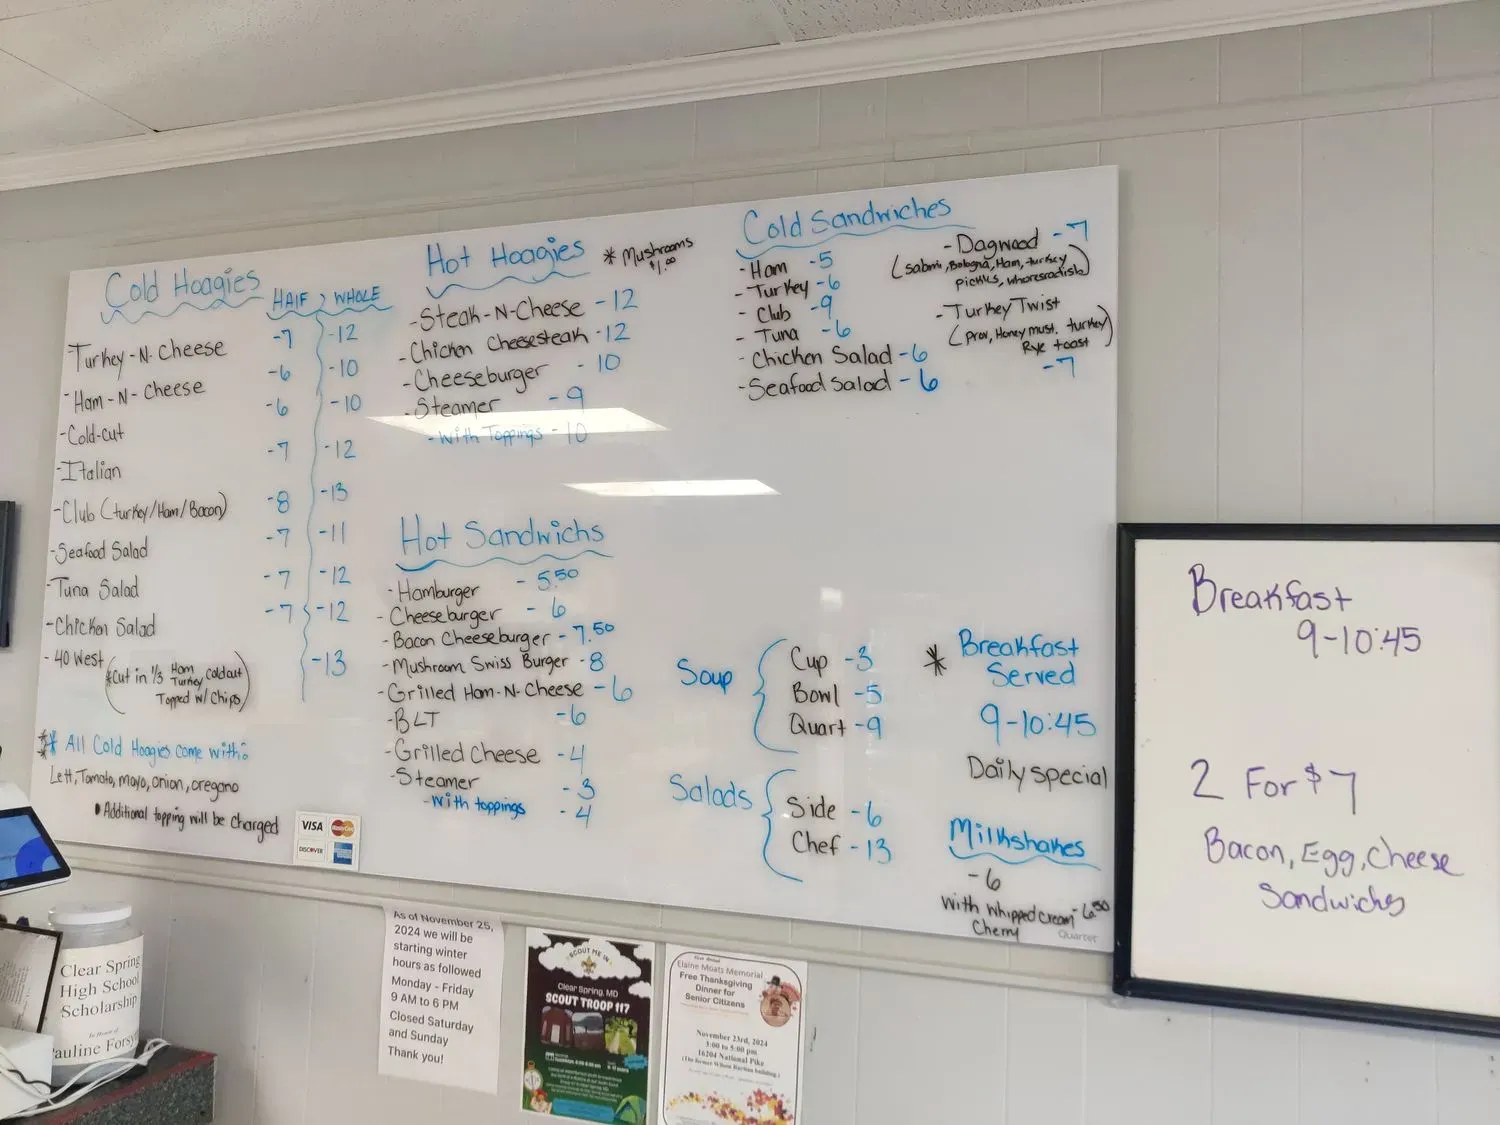 Cold Hoagies
HAIF WHOLE
-Turkey-N-Cheese -7 -12
-Ham-N-Cheese -6 -10
-Cold-cut -6 -10
-Italian -7 -12
-Club (turkey/Ham/Bacon) -8 -13
-Seafood Salad -7 -11
-Tuna Salad -7 -12
-Chicken Salad -7 -12
-40 West -13
(*Cut in 1/3 Ham
Turkey Coldcut
Topped w/ Chips)
** All Cold Hoagies come with:
Lett, Tomato, mayo, onion, oregano
• Additional topping will be charged
VISA MasterCard
DISCOVER
Hot Hoagies
* Mushrooms
$1.00
-Steak-N-Cheese -12
-Chicken Cheesesteak -12
-Cheeseburger -10
-Steamer -9
-With Toppings -10
Hot Sandwichs
-Hamburger -5.50
-Cheeseburger -6
-Bacon Cheeseburger -7.50
-Mushroom Swiss Burger -8
-Grilled Ham-N-Cheese -6
-BLT -6
-Grilled Cheese -4
-Steamer -3
-With toppings -4
Cold Sandwiches
-Ham -5
-Turkey -6
-Club -9
-Tuna -6
-Chicken Salad -6
-Seafood Salad -6
-Dagwood -7
(Salami, Bologna, Ham, turkey
pickles, whoresradish)
-Turkey Twist
(prov, Honey must, turkey
Rye toast)
-7
Soup
Cup -3
Bowl -5
Quart -9
Salads
Side -6
Chef -13
* Breakfast
Served
9-10:45
Daily special
Milkshakes
-6
With Whipped cream -6.50
Cherry
Quartet
Breakfast
9-10:45
2 For $7
Bacon, Egg, Cheese
Sandwiches
Clear Spring
High School
Scholarship
In Honor of
Pauline Forsy
As of November 25,
2024 we will be
starting winter
hours as followed
Monday - Friday
9 AM to 6 PM
Closed Saturday
and Sunday
Thank you!
SCOUT ME IN
Clear Spring, MD
SCOUT TROOP 117
Elaine Moats Memorial
Free Thanksgiving
Dinner for
Senior Citizens
November 23rd, 2024
3:00 to 5:00 pm
16204 National Pike
(The former Wilson Ruritan building)